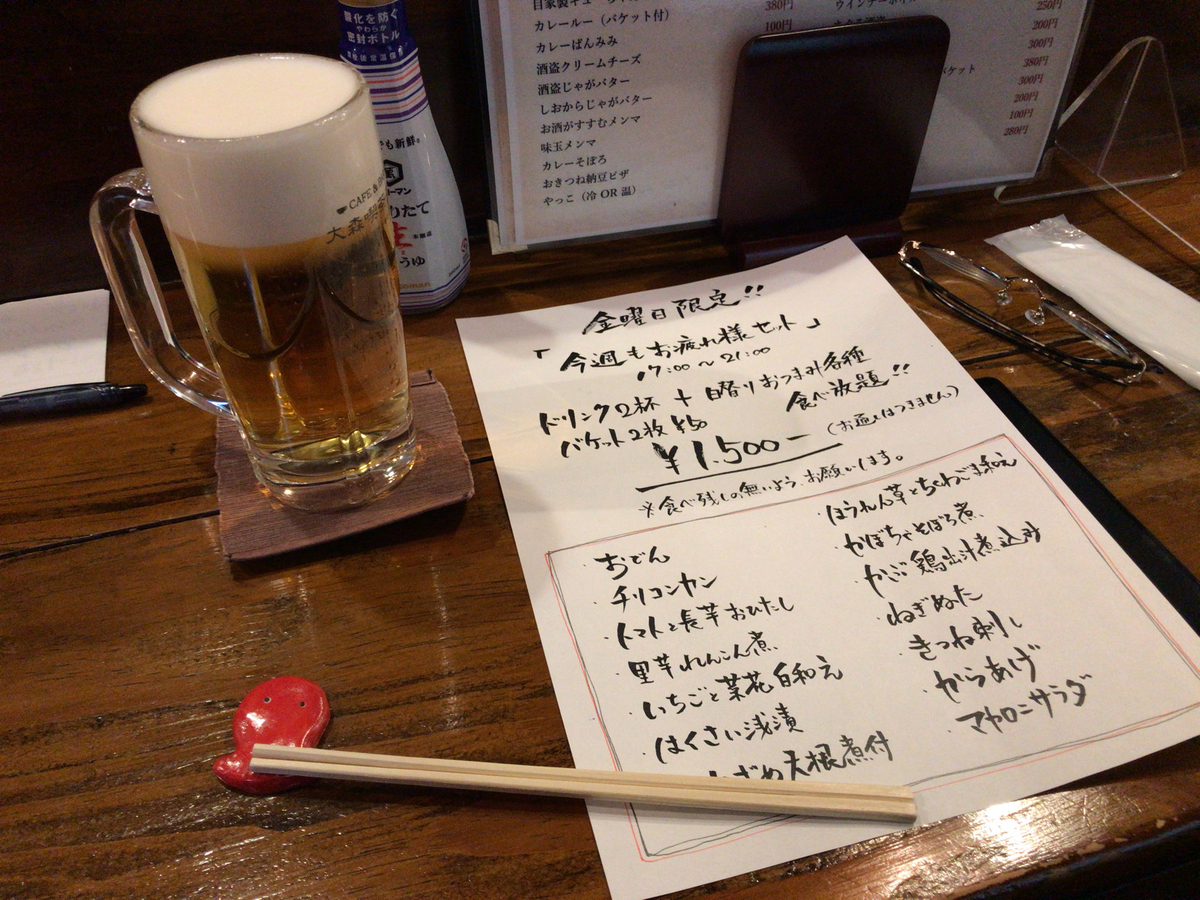 酸化を防ぐ
やわらか
密封ボトル
でも新鮮。
りたて
生
うゆ
CAFE &
大森
カレールー（バケット付）
カレーぱんみみ
酒盗クリームチーズ
酒盗じゃがバター
しおからじゃがバター
お酒がすすむメンマ
味玉メンマ
カレーそぼろ
おきつね納豆ピザ
やっこ（冷 OR 温）
380円
100円
250円
200円
300円
380円
300円
200円
100円
280円
金曜日限定!!
「今週もお疲れ様セット」
17:00〜21:00
ドリンク2杯 + 日替りおつまみ各種
食べ放題!!
バケット2枚 ¥50
¥1,500-
（お通しはつきません）
※食べ残しの無いよう、お願いします。
おでん
・チリコンカン
・トマトと長芋おひたし
・里芋れんこん煮
・いちごと菜花白和え
・はくさい浅漬
大根煮付
・ほうれん草とちくわごま和え
・かぼちゃそぼろ煮
・かぶ鶏出汁煮込み
・ねぎぬた
・きつね刺し
・からあげ
・マカロニサラダ